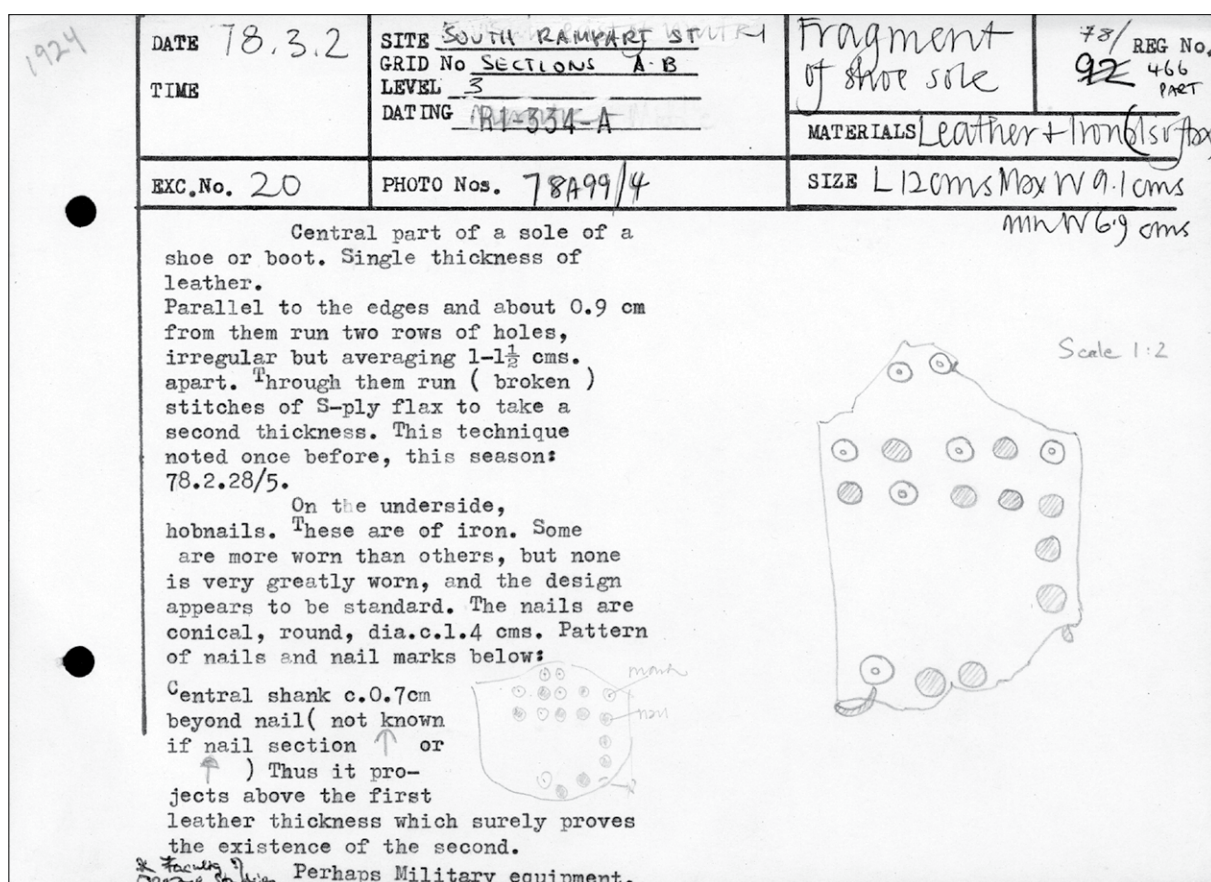 1924
DATE 78.3.2
TIME
SITE SOUTH RAMPART ST
GRID No SECTIONS A-B
LEVEL 3
DATING R1-334-A
Fragment
of shoe sole
78/
92 REG No.
466
PART
MATERIALS Leather + Iron
EXC.No. 20
PHOTO Nos. 78A99/4
SIZE L 12cms Max W 9.1 cms
min W 6.9 cms
Central part of a sole of a
shoe or boot. Single thickness of
leather.
Parallel to the edges and about 0.9 cm
from them run two rows of holes,
irregular but averaging 1-1½ cms.
apart. Through them run ( broken )
stitches of S-ply flax to take a
second thickness. This technique
noted once before, this season:
78.2.28/5.
On the underside,
hobnails. These are of iron. Some
are more worn than others, but none
is very greatly worn, and the design
appears to be standard. The nails are
conical, round, dia.c.1.4 cms. Pattern
of nails and nail marks below:
Central shank c.0.7cm
beyond nail( not known
if nail section ↑ or
↑ ) Thus it pro-
jects above the first
leather thickness which surely proves
the existence of the second.
Perhaps Military equipment.
* Faculty of
nail
Scale 1:2